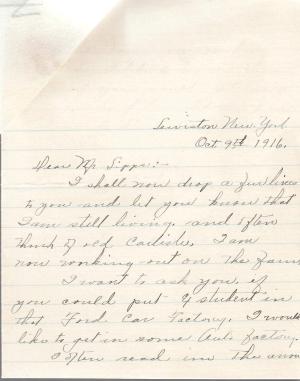 Lewiston New. York.
Oct 9th 1916.
Dear Mr Lipps:-
I shall now drop a few lines
to you and let you know that
I am still living. and often
think of old Carlisle. I am
now working out on the farm
I want to ask you, if
you could put y student in
that Ford Car Factory. I would
like to get in some Auto factory.
I often read in the arrow